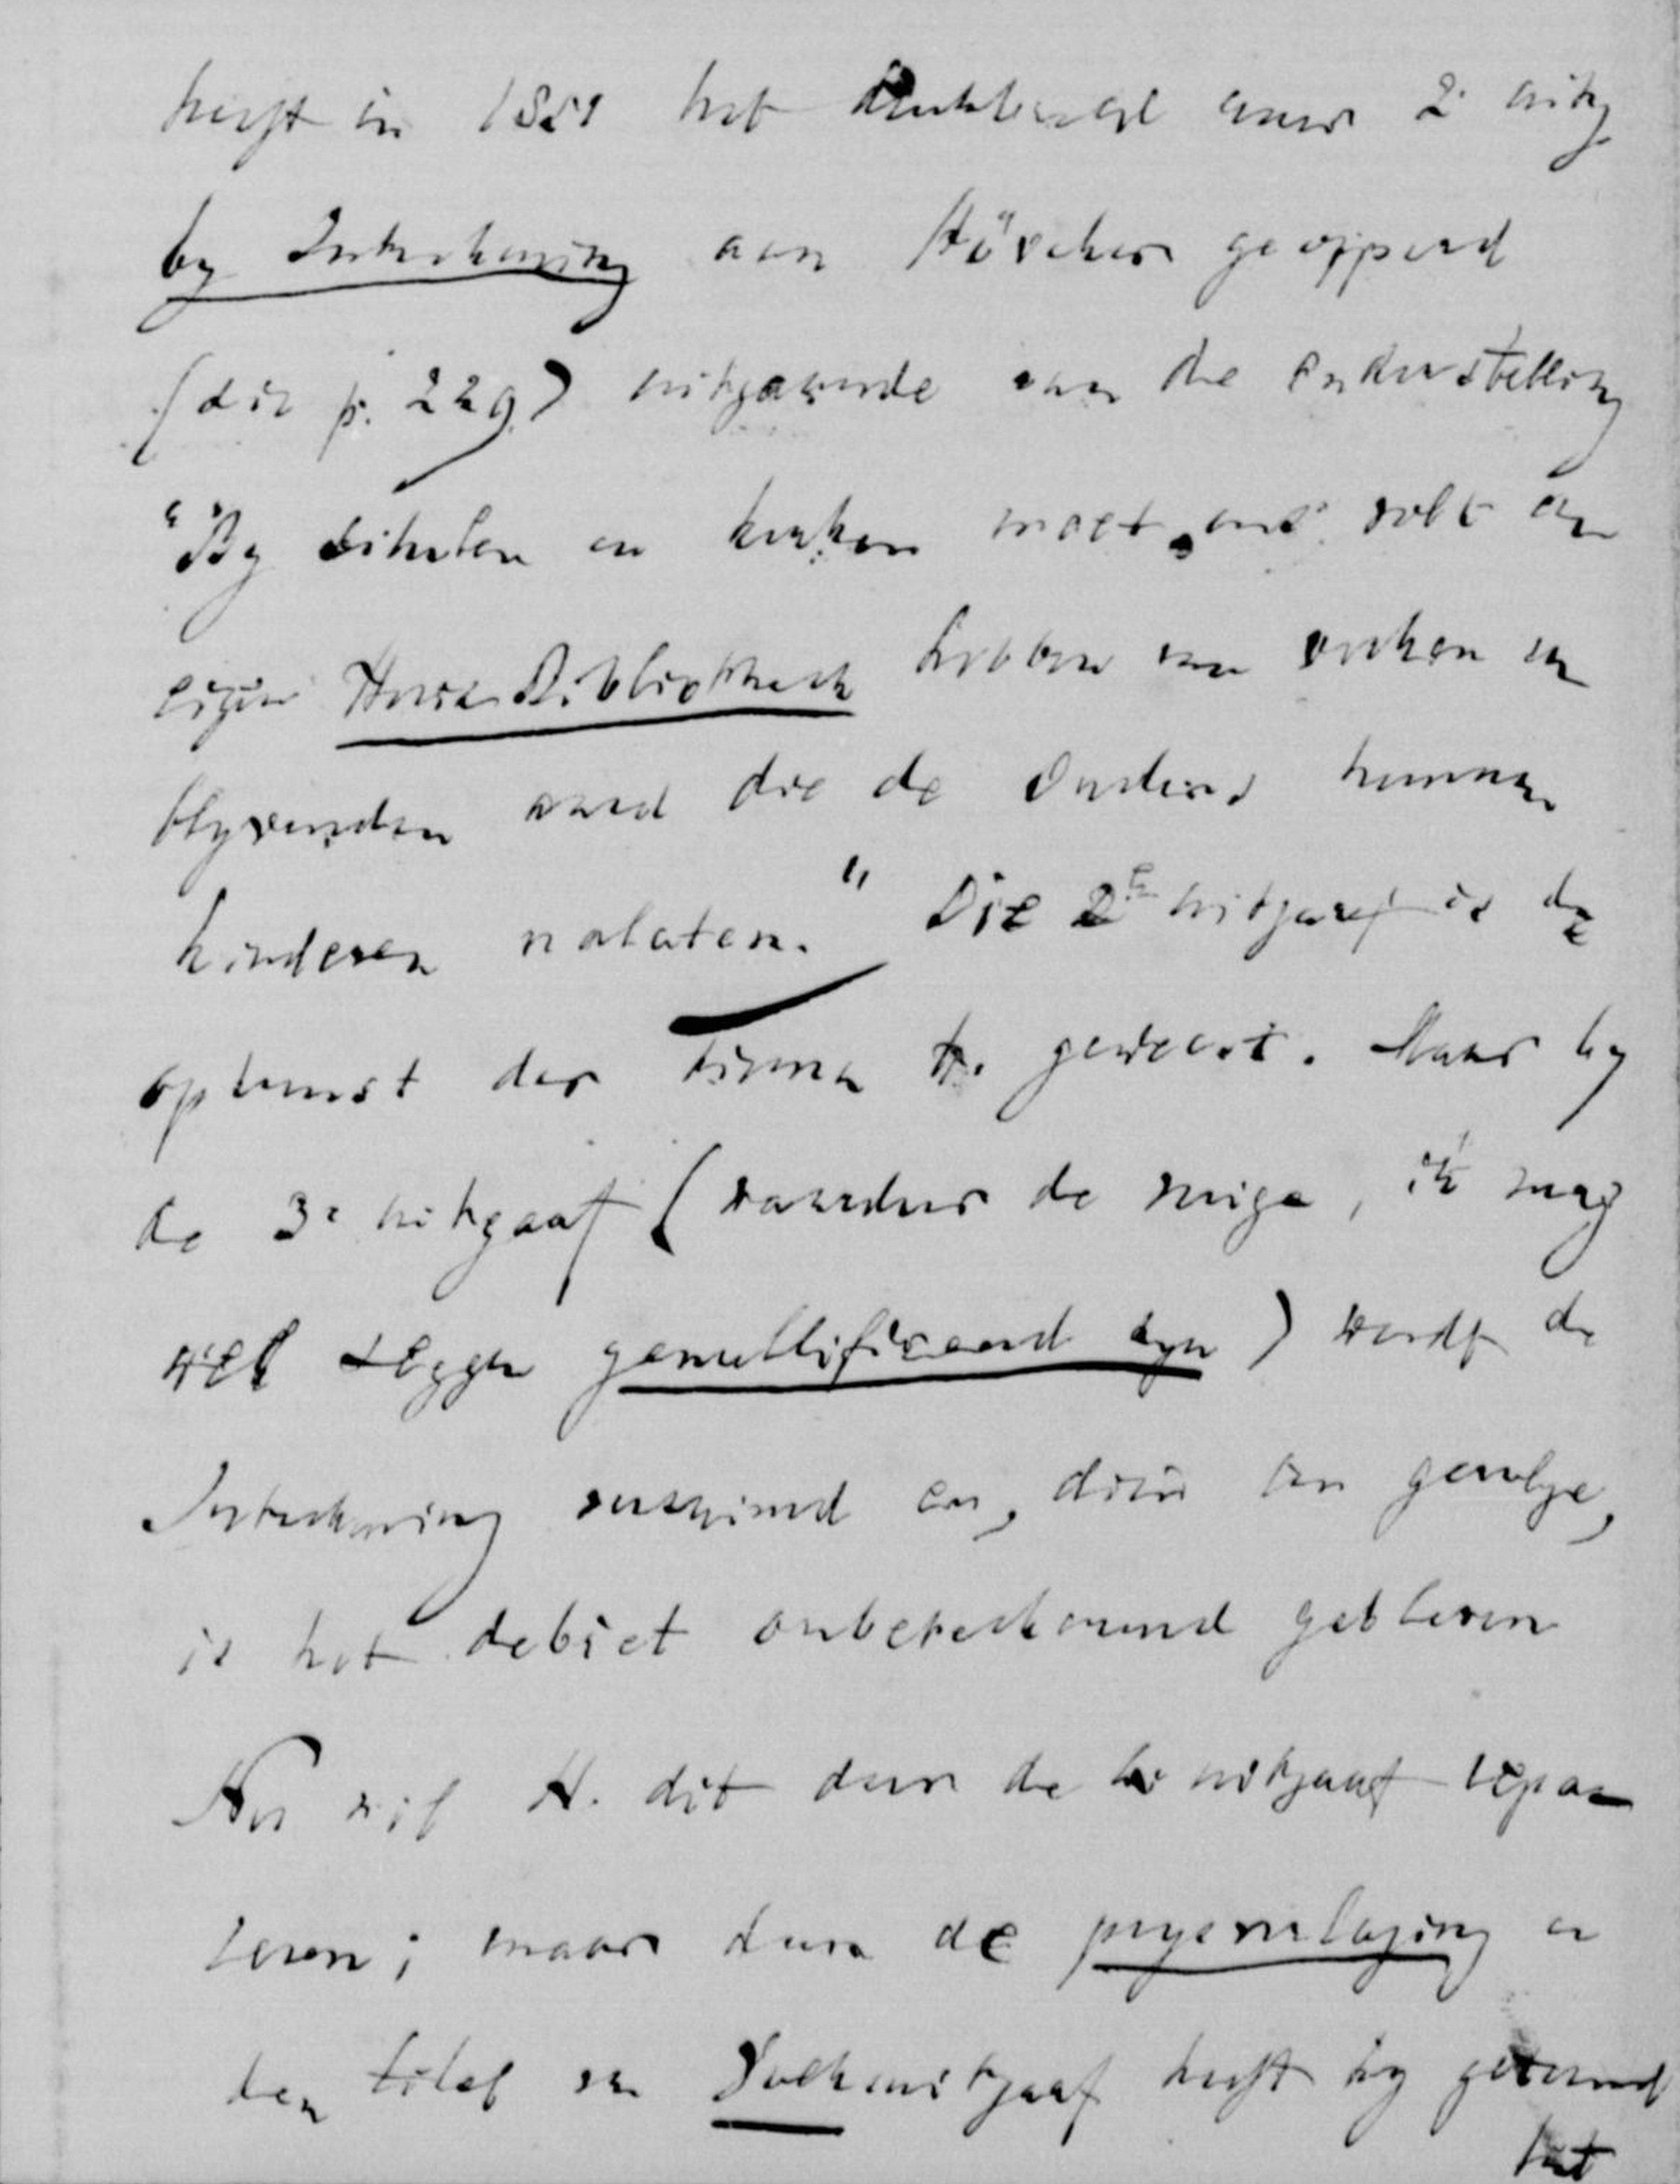 heeft in 1851 het denkbeeld eener 2e uitg
by Inteekening aan Höveker geopperd
(die p. 229) uitgaande van de onderstelling
"By titulen en kerken moet, ons volk een
eigen Huis-Bibliotheek hebben van werken van
blyvenden aard die de Ouders hunnen
kinderen nalaten." Die 2e uitgaaf is de
opkomst der firma H. geweest. Maar by
de 3e uitgaaf (waardoor de myne, ik mag
wel zeggen genullificeerd zyn) werdt de
Inteekening verzuimd en, dien ten gevolge,
is het debiet onbeteekenend gebleven
Nu wil H. dit door de 4e uitgaaf repa-
reren; maar door de prysverlaging en
den titel van Volksuitgaaf heeft hy getoond
het